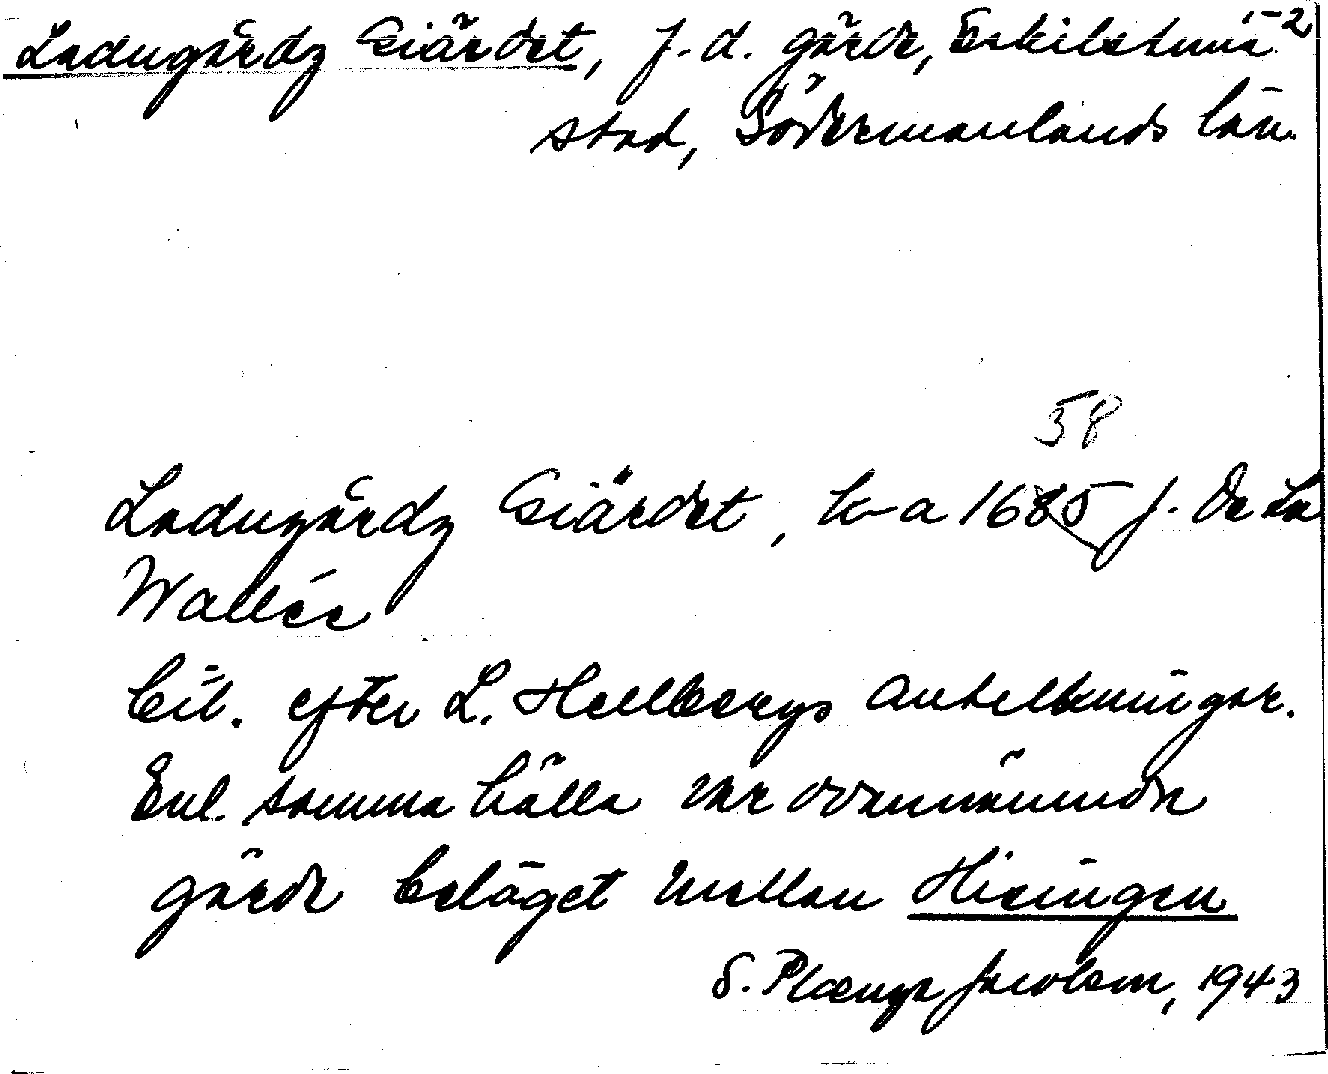 Ladugårdz Giärdet, f.d. gärde, Eskilstuna -2
stad, Södermanlands län.
58
Ladugårdz Giärdet, ka 1685 f. De La
Wallée
Cit. efter L. Hellbergs anteckningar.
Enl. samma källa var ovannämnda
gärde beläget mellan Hisingen
S. Plænge Jacobson, 1943